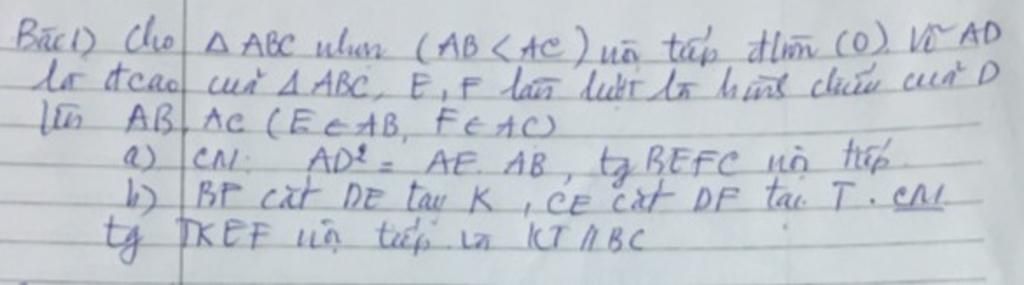 Bài 1) Cho △ABC nhọn (AB < AC) nội tiếp đtròn (O). Vẽ AD
là đcao của △ABC, E, F lần lượt là hình chiếu của D
lên AB, AC (E ∈ AB, F ∈ AC)
a) CM: AD² = AE. AB, tg BEFC nội tiếp
b) BF cắt DE tại K, CE cắt DF tại T. CM
tg TKEF nội tiếp và KT // BC